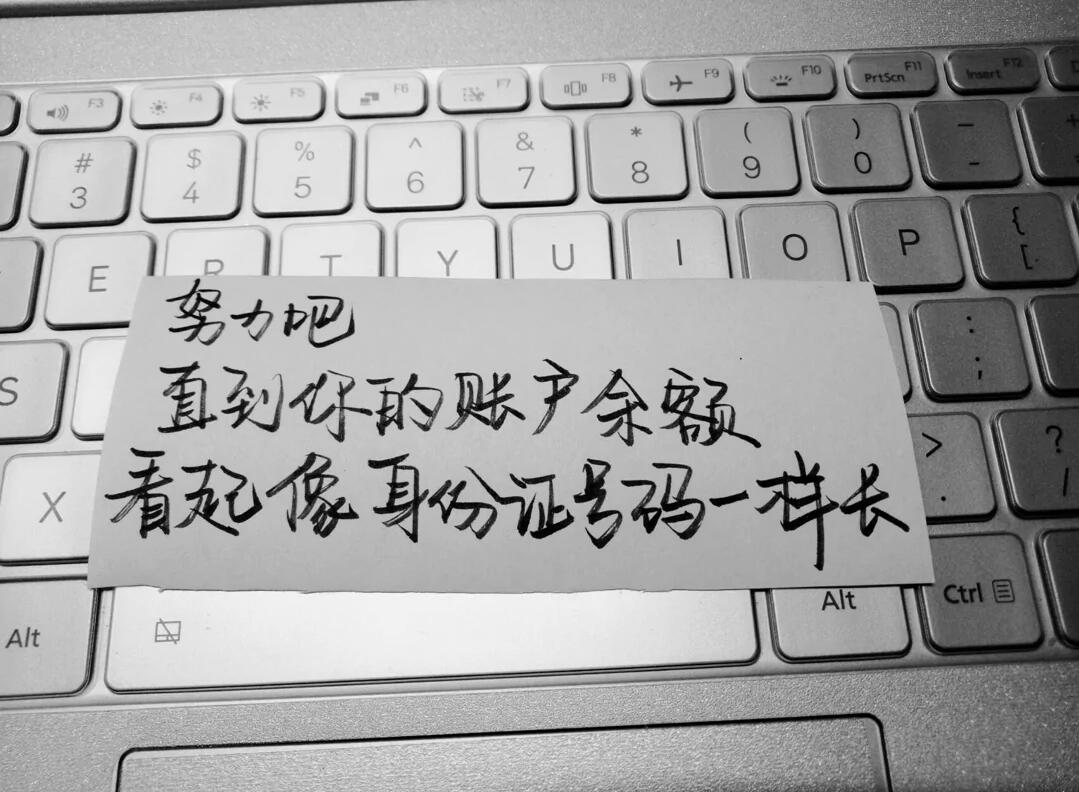 F3 F4 F5 F6 F7 F8 F9 F10 PrtScn F11 Insert F12
# $ % ^ & * ( ) _ +
3 4 5 6 7 8 9 0 - =
E R T Y U I O P { [
努力吧
: ;
直到你的账户余额
S
看起像身份证号码一样长
X > . ? /
Alt Alt Ctrl